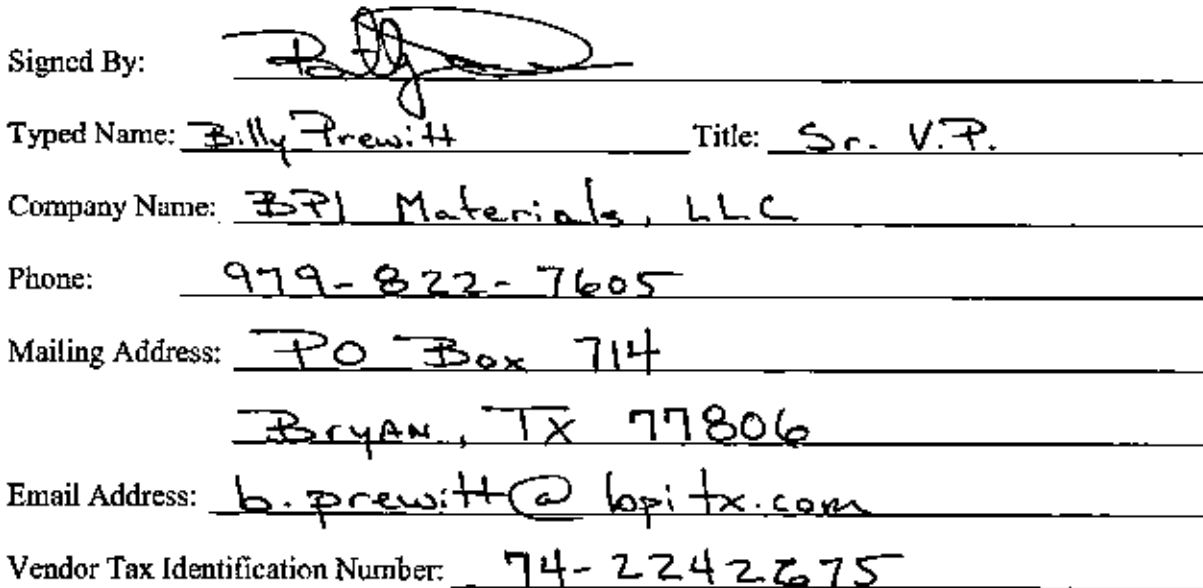 Signed By:
Typed Name: Billy Prewitt Title: Sr. V.P.
Company Name: BPI Materials, LLC
Phone: 979-822-7605
Mailing Address: PO Box 714
Bryan, Tx 77806
Email Address: b.prewitt@bpitx.com
Vendor Tax Identification Number: